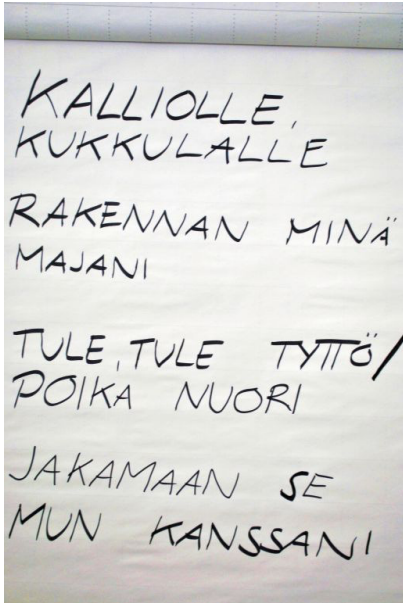 KALLIOLLE,
KUKKULALLE
RAKENNAN MINÄ
MAJANI
TULE, TULE TYTTÖ/
POIKA NUORI
JAKAMAAN SE
MUN KANSSANI